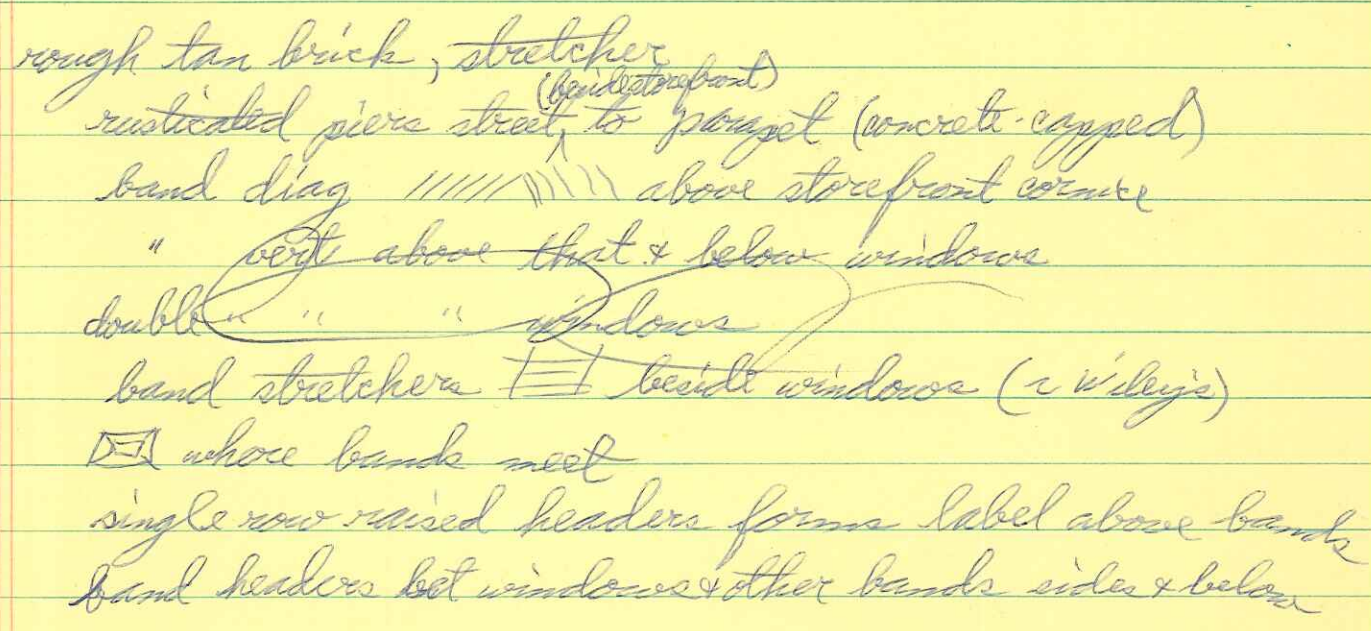 rough tan brick, stretcher
(beside storefront)
rusticated piers street to parapet (concrete-capped)
band diag ////// \\\\\ above storefront cornice
" vert above that & below windows
double " " " windows
band stretchers beside windows (Wiley's)
where bands meet
single row raised headers forms label above bands
band headers bet windows & other bands sides & below